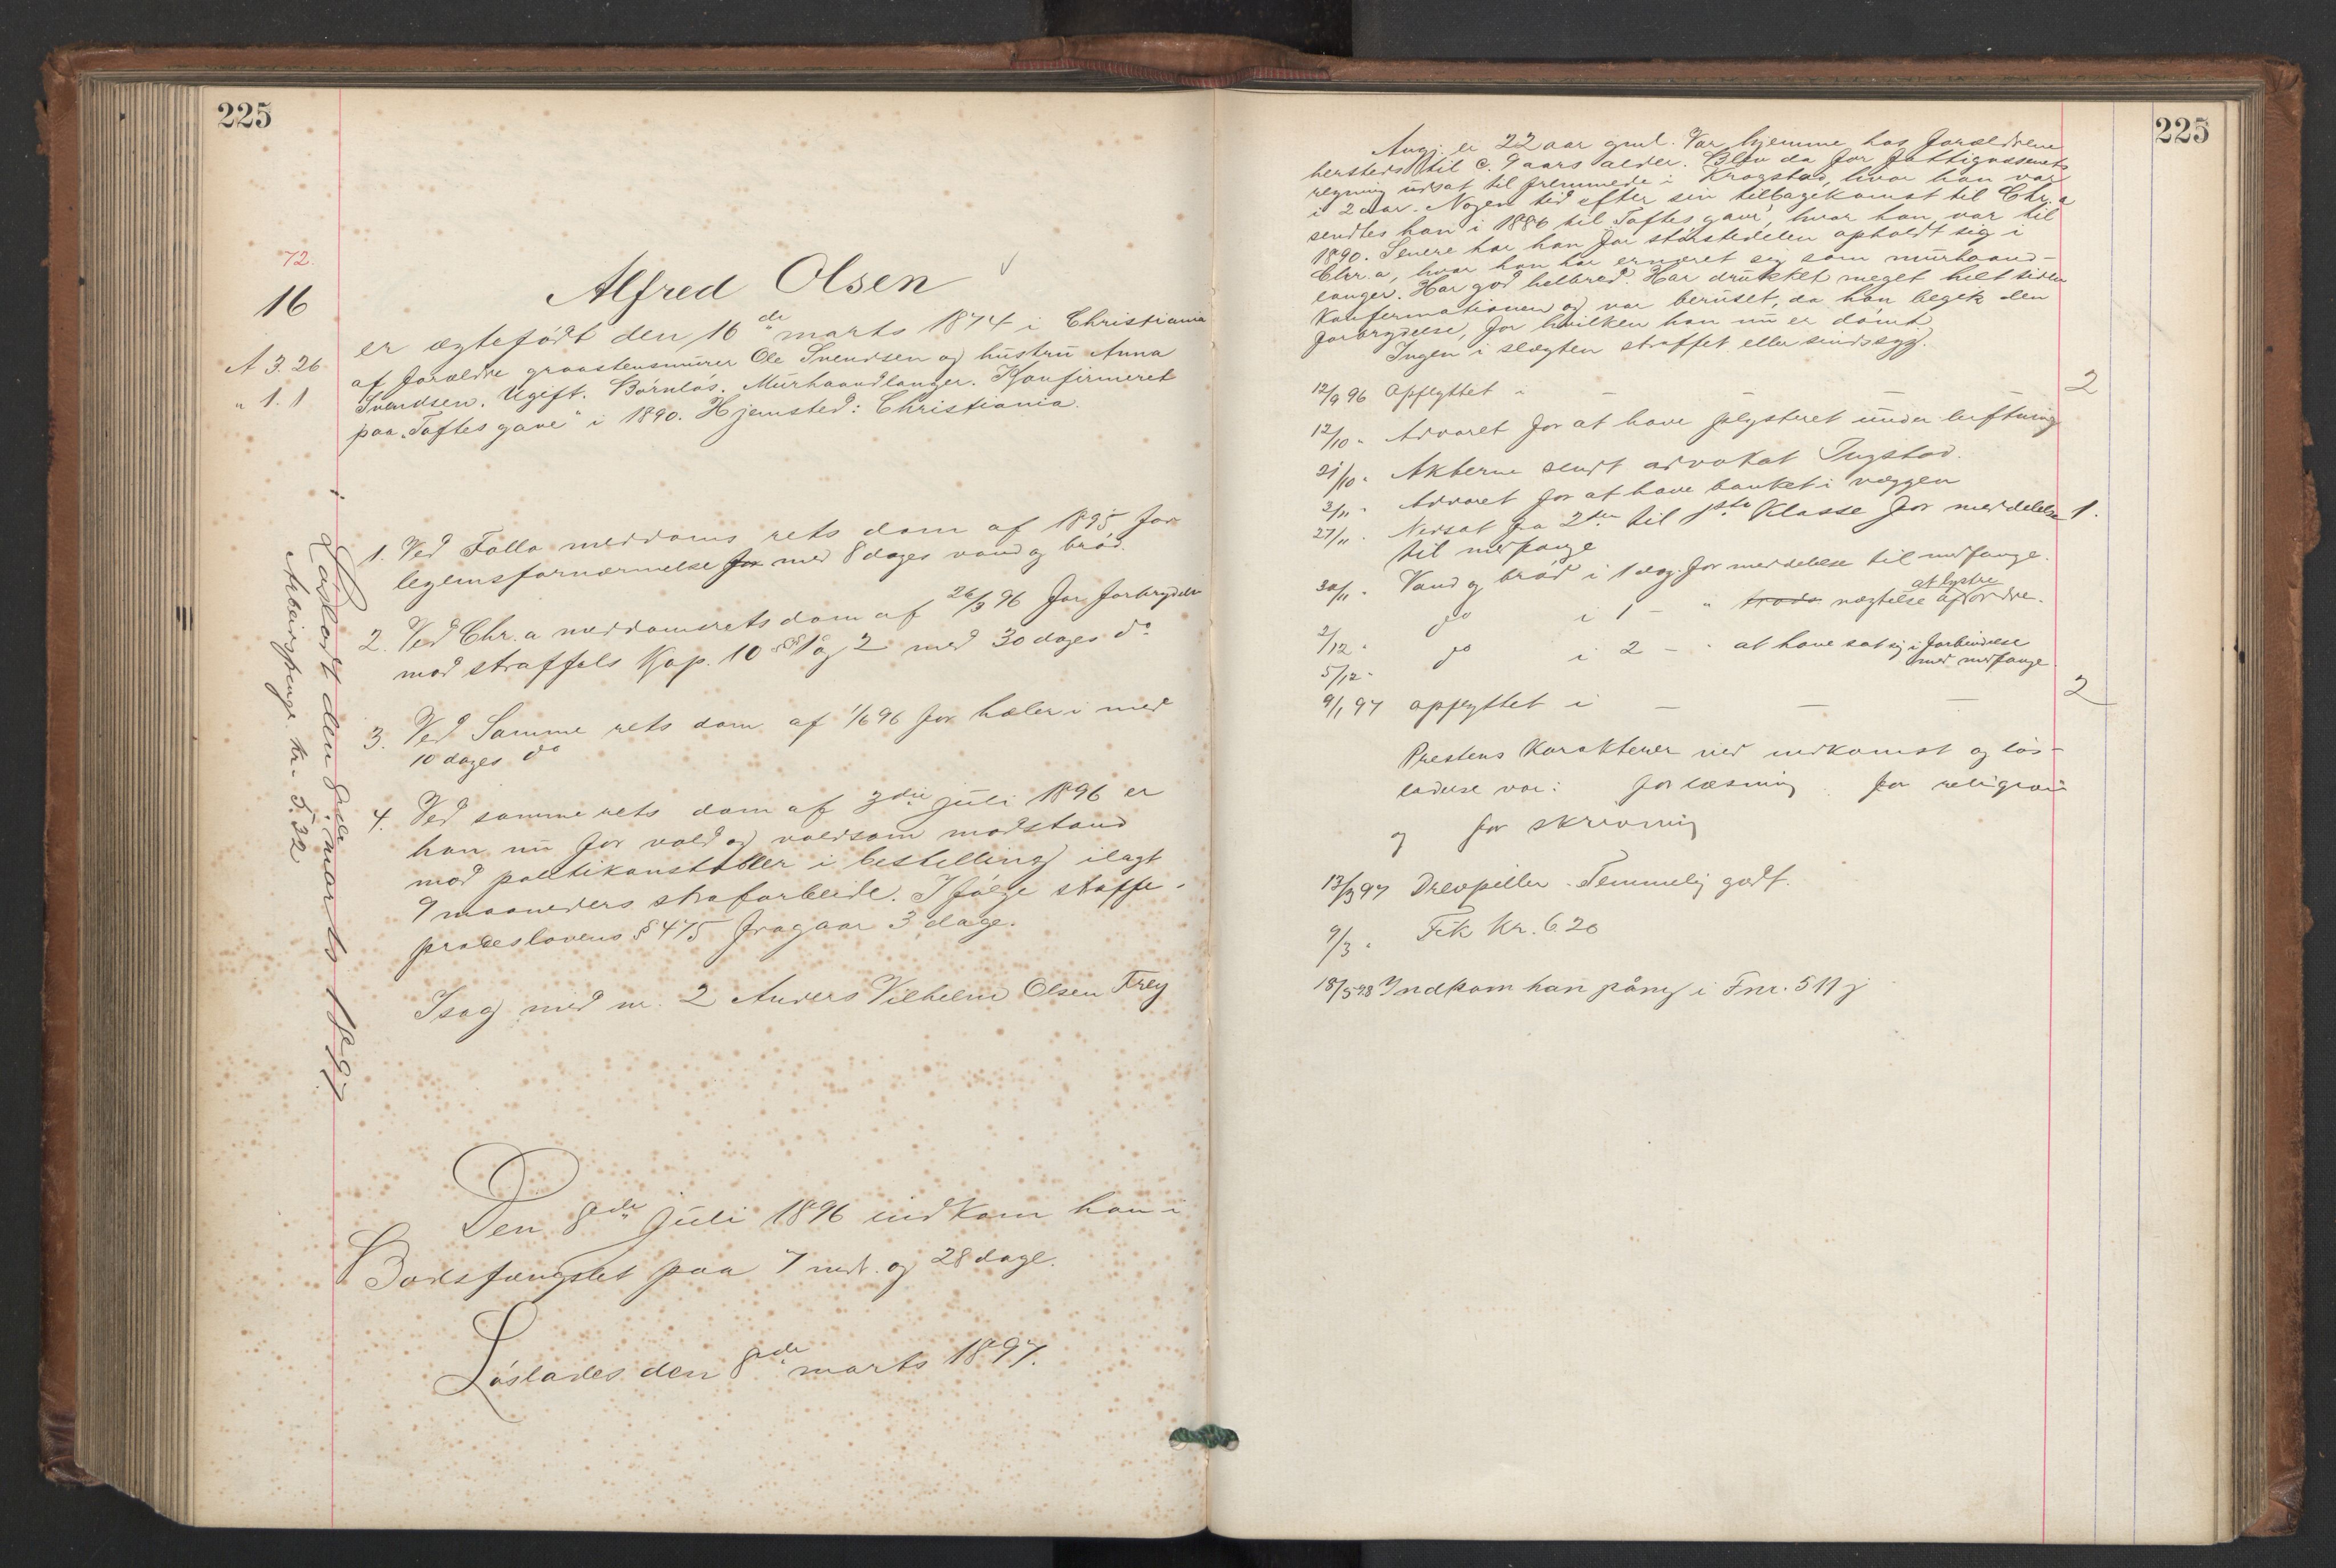 225
72.
16
A 3.26
" 1.1
Alfred Olsen
er ægtefødt den 16de marts 1874 i Christiania
af forældre graastensmurer Ole Svendsen og hustru Anna
Svendsen. Ugift. Børnløs. Murhaandlanger. Konfirmeret
paa „Toftes gave" i 1890. Hjemsted: Christiania.
1. Ved Follo meddoms rets dom af 1895 for
legemsfornærmelse for med 8 dages vand og brød.
2. Ved Chr.a meddomsrets dom af 26/3 96 for forbrydelse
mod straffels Kap. 10 §§ 1 og 2 med 30 dages do
3. Ved Samme rets dom af 1/6 96 for hæleri med
10 dages do
4. Ved samme rets dom af 3die juli 1896 er
han nu for vold og voldsom modstand
mod politikonstabler i bestilling ilagt
9 maaneders strafarbeide. Ifølge straffe-
proceslovens § 475 fragaar 3 dage.
Isag med nr. 2 Anders Vilhelm Olsen Frey
Den 8de juli 1896 indkom han i
Bodsfængslet paa 7 mdr. og 28 dage.
Løslades den 8de marts 1897.
Løsladt den 8de marts 1897
Arbeidspenge kr. 5.32
225
Angj. er 22 aar gml. Var hjemme hos forældrene
hersteds til c. 9 aars alder. Blev da for fattigvæsenets
regning udsat til fremmede i Kragstad, hvor han var
i 2 aar. Nogen tid efter sin tilbagekomst til Chr.a
sendtes han i 1886 til Toftes gave, hvor han var til
1890. Senere har han for størstedelen opholdt sig i
Chr.a, hvor han har ernæret sig som murhaand-
langer. Har god helbred. Har drukket meget helt siden
Konfirmationen og var beruset, da han begik den
forbrydelse, for hvilken han nu er dømt
Ingen i slægten straffet eller sindssyg.
12/9 96 Opflyttet i — — — 2
12/10 " Advaret for at have plystret under luftning
21/10 " Akterne sendt advokat Ingstad.
2/11 " Advaret for at have banket i væggen
27/11 " Nedsat fra 2den til 1ste Klasse for meddelelse 1.
til medfange
30/11 " Vand og brød i 1 dag for meddelelse til medfange.
2/12 " do i 1 — " trods nægtelse af at lystre ordre.
5/12 " do i 2 — " at have sat sig i forbindelse
med medfange
9/1 97 opflyttet i — — — 2
Prestens Karakterer ved indkomst og løs-
ladelse var: for læsning for religion
og for skrivning
13/3 97 Drevpiller. Temmelig godt.
9/3 " Fik Kr. 6.20
18/5 98 Indkom han påny i Fnr. 511 j